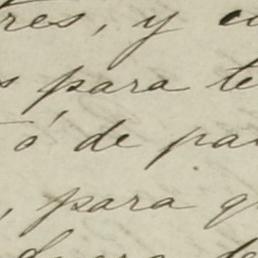 res, y
s para te
ó de pa
, para q